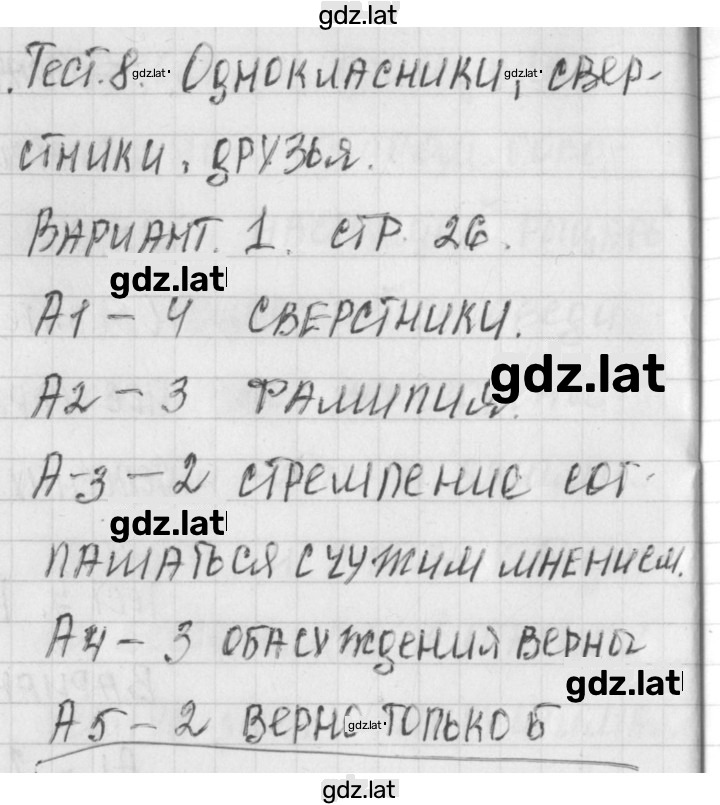 gdz.lat
Тест.8. gdz.lat Однокласники, gdz.lat свер-
стники, друзья.
Вариант. 1. стр. 26.
gdz.lat
А1 – 4 сверстники.
gdz.lat
А2 – 3 Фамилия.
А-3 – 2 стремление сог-
gdz.lat
лашаться с чужим мнением.
А4 – 3 оба суждения верны
gdz.lat
А5 – 2 верно gdz.lat только Б
gdz.lat